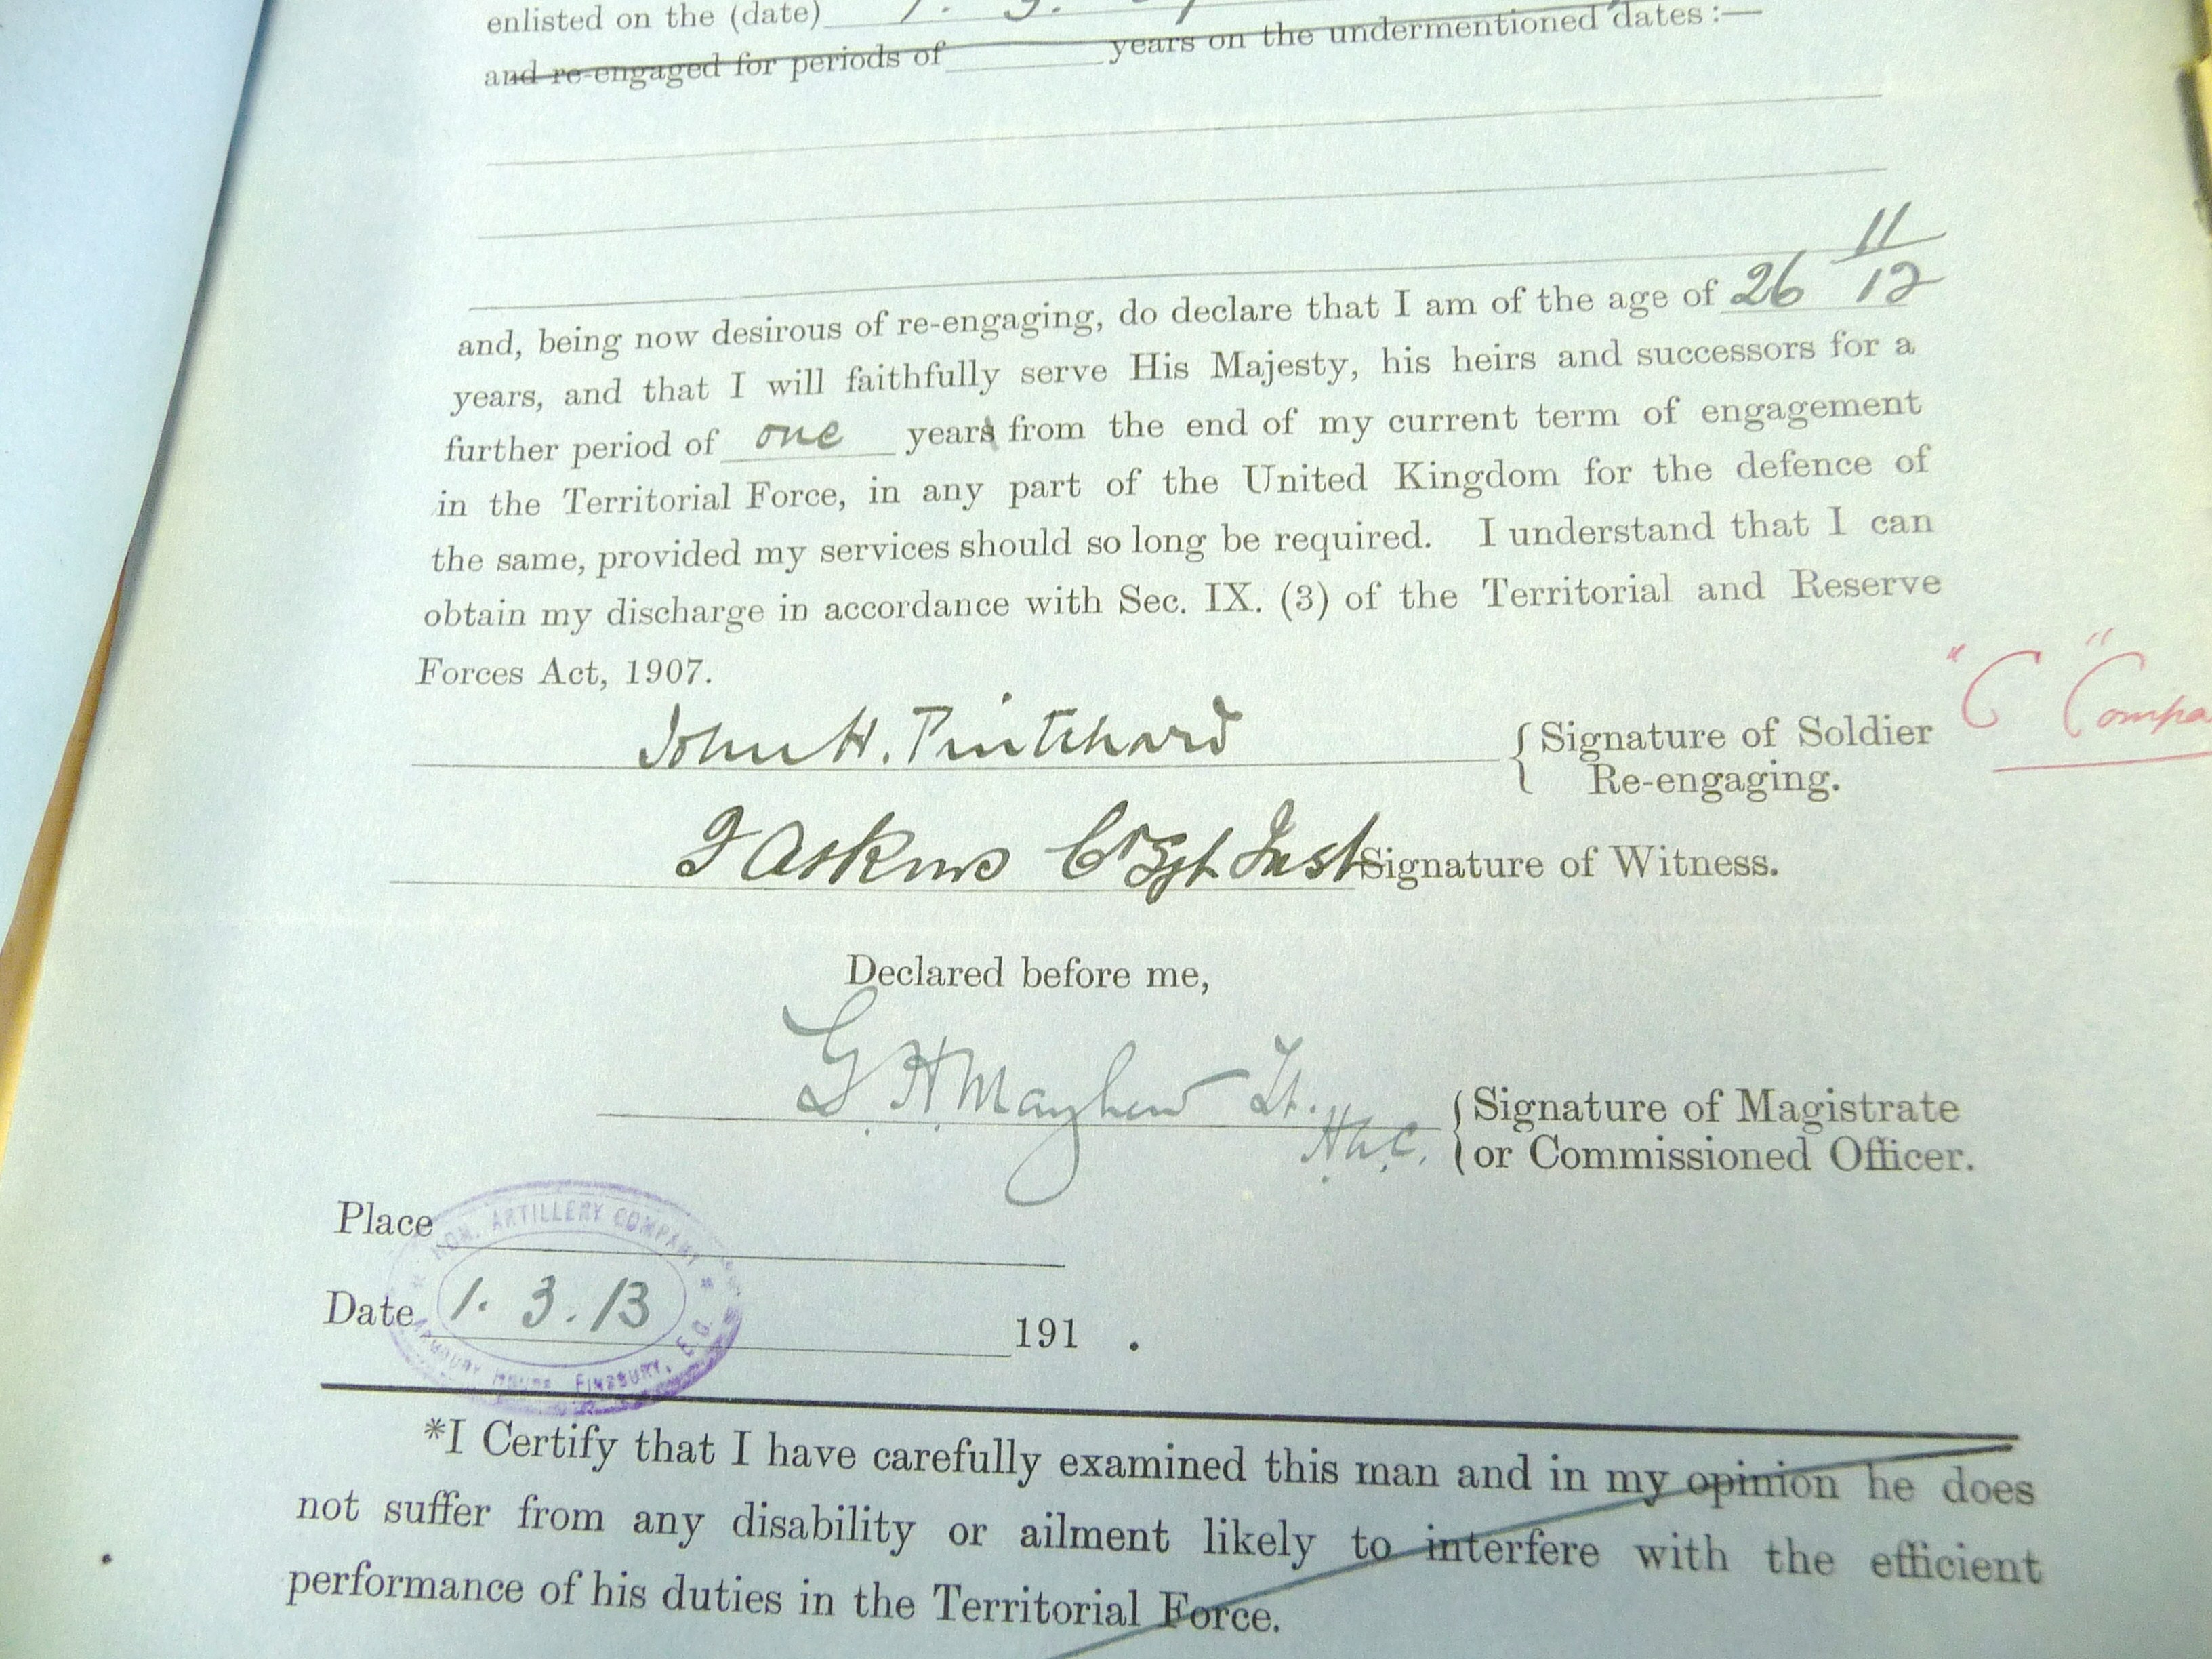 enlisted on the (date)
and re-engaged for periods of ______ years on the undermentioned dates :—
and, being now desirous of re-engaging, do declare that I am of the age of 26 11/12
years, and that I will faithfully serve His Majesty, his heirs and successors for a
further period of one years from the end of my current term of engagement
in the Territorial Force, in any part of the United Kingdom for the defence of
the same, provided my services should so long be required. I understand that I can
obtain my discharge in accordance with Sec. IX. (3) of the Territorial and Reserve
Forces Act, 1907.
"C" Compa
John H. Pritchard { Signature of Soldier
Re-engaging.
J Askins Cr Sgt Inst Signature of Witness.
Declared before me,
G. H. Mayhew Lt.
H.A.C.
{ Signature of Magistrate
or Commissioned Officer.
Place
HON. ARTILLERY COMPANY
Date 1. 3. 13 191 .
ARMOURY HOUSE, FINSBURY, E.C.
*I Certify that I have carefully examined this man and in my opinion he does
not suffer from any disability or ailment likely to interfere with the efficient
performance of his duties in the Territorial Force.